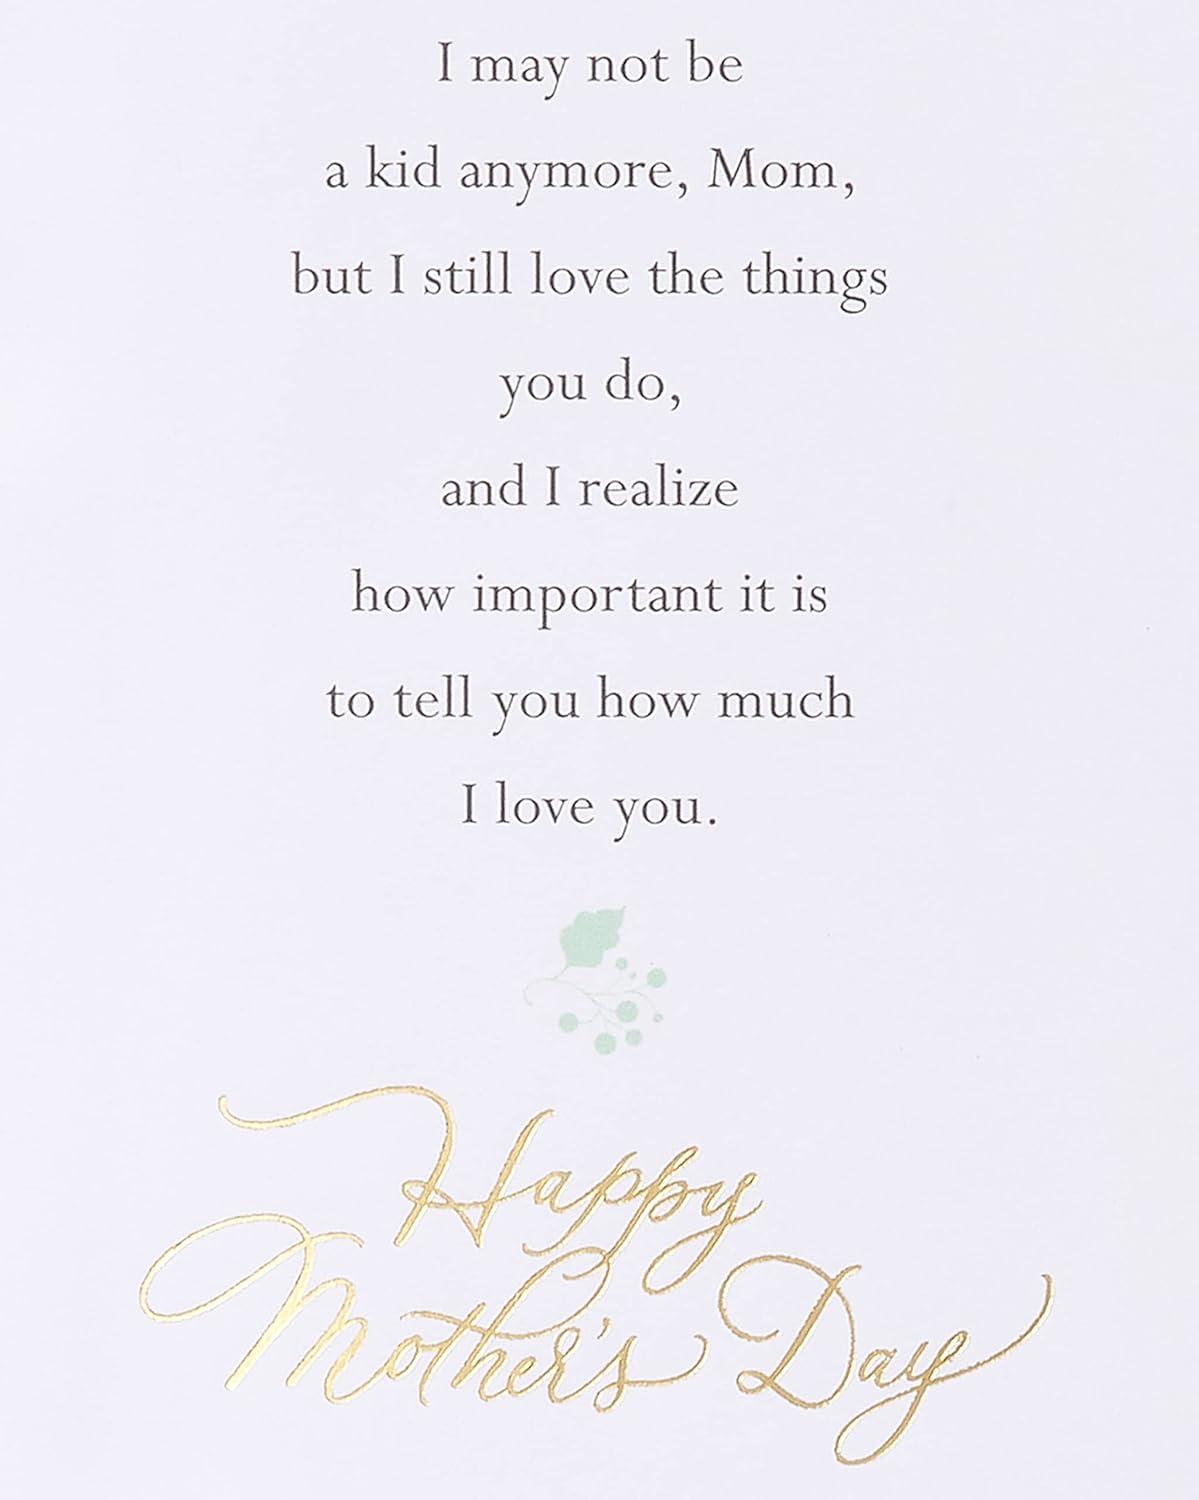 I may not be
a kid anymore, Mom,
but I still love the things
you do,
and I realize
how important it is
to tell you how much
I love you.
Happy
Mother's Day